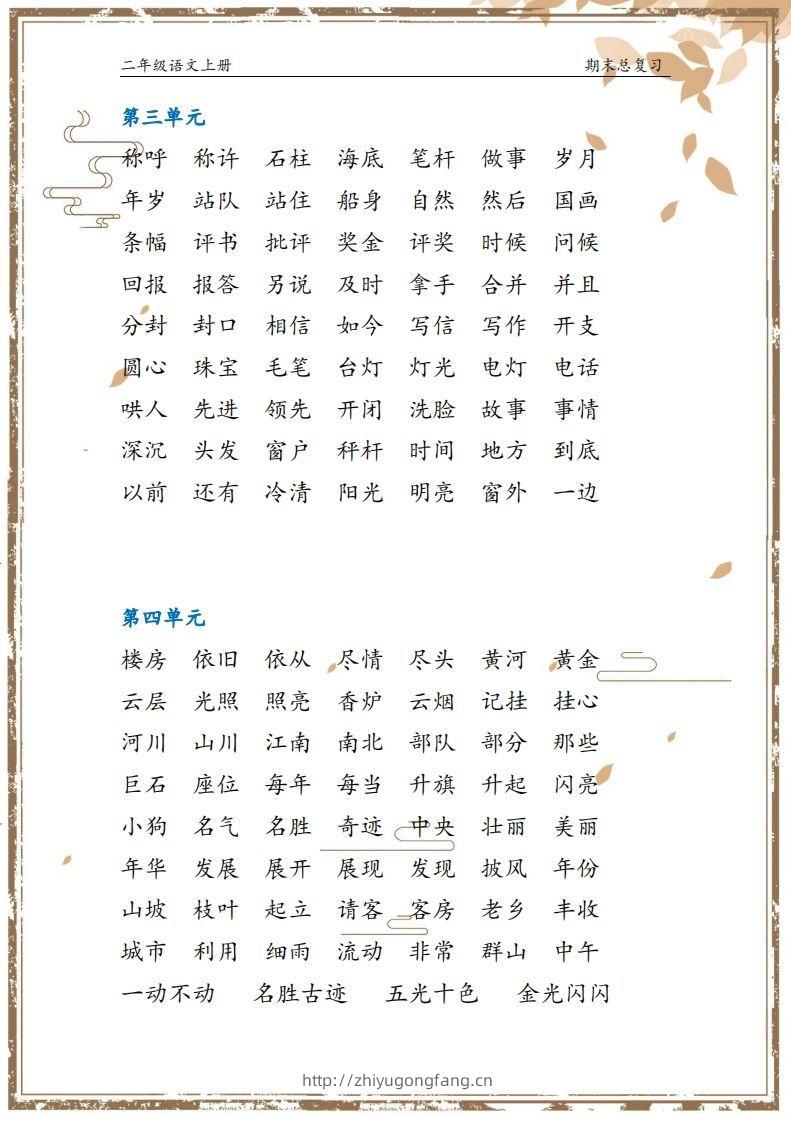 二年级语文上册 期末总复习
第三单元
称呼 称许 石柱 海底 笔杆 做事 岁月
年岁 站队 站住 船身 自然 然后 国画
条幅 评书 批评 奖金 评奖 时候 问候
回报 报答 另说 及时 拿手 合并 并且
分封 封口 相信 如今 写信 写作 开支
圆心 珠宝 毛笔 台灯 灯光 电灯 电话
哄人 先进 领先 开闭 洗脸 故事 事情
深沉 头发 窗户 秤杆 时间 地方 到底
以前 还有 冷清 阳光 明亮 窗外 一边
第四单元
楼房 依旧 依从 尽情 尽头 黄河 黄金
云层 光照 照亮 香炉 云烟 记挂 挂心
河川 山川 江南 南北 部队 部分 那些
巨石 座位 每年 每当 升旗 升起 闪亮
小狗 名气 名胜 奇迹 中央 壮丽 美丽
年华 发展 展开 展现 发现 披风 年份
山坡 枝叶 起立 请客 客房 老乡 丰收
城市 利用 细雨 流动 非常 群山 中午
一动不动 名胜古迹 五光十色 金光闪闪
http://zhiyugongfang.cn